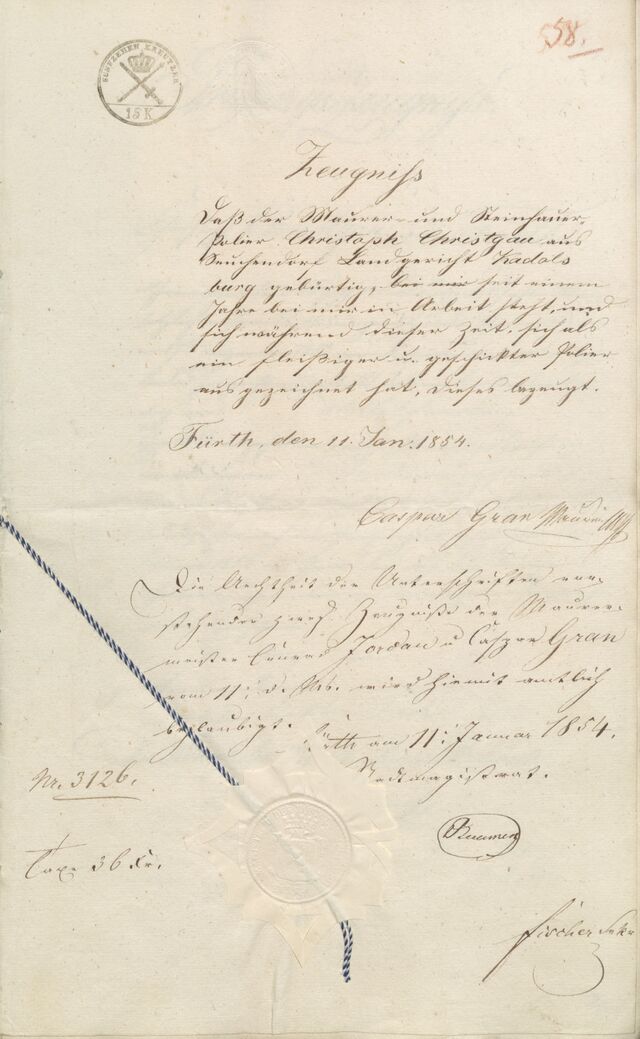 58.
FUNFZEHEN KREUTZER
15 K
Zeugniss
Daß der Maurer- und Steinhauer-
Polier Christoph Christgau aus
Seuchendorf Landgericht Kadolz
burg gebürtig, bei mir seit einem
Jahre bei mir in Arbeit steht, und
sich während dieser Zeit, sich als
ein fleißiger u. geschickter Polier
ausgezeichnet hat, dieses bezeugt.
Fürth, den 11. Jan. 1854.
Caspar Gran
Die Aechtheit der Unterschriften vor-
stehender zwei Zeugniße der Maurer-
meister Conrad Jordan u Caspar Gran
vom 11. d. Mts. wird hiemit amtlich
beglaubigt.
Fürth am 11. Januar 1854.
Stadtmagistrat.
Nr. 3126.
Taxe 36 Kr.
Fischer Sekr